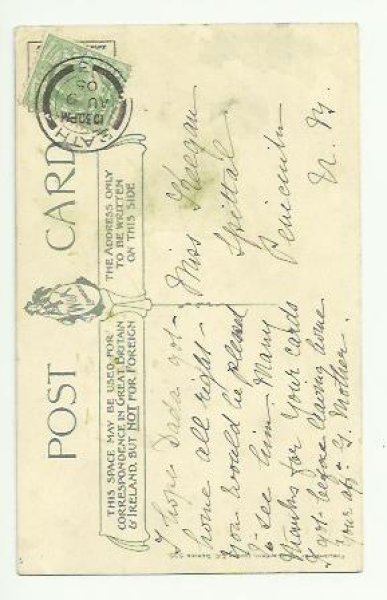 POST CARD
THIS SPACE MAY BE USED FOR
CORRESPONDENCE IN GREAT BRITAIN
& IRELAND, BUT NOT FOR FOREIGN
THE ADDRESS ONLY
TO BE WRITTEN
ON THIS SIDE
10.30PM
AU 9
05
I hope Dada got
home all right -
you would be pleased
to see him. Many
thanks for your cards
I got before leaving home
Your aff. G. Mother.
Miss Keegan
Spittal
Penicuik
N. B.